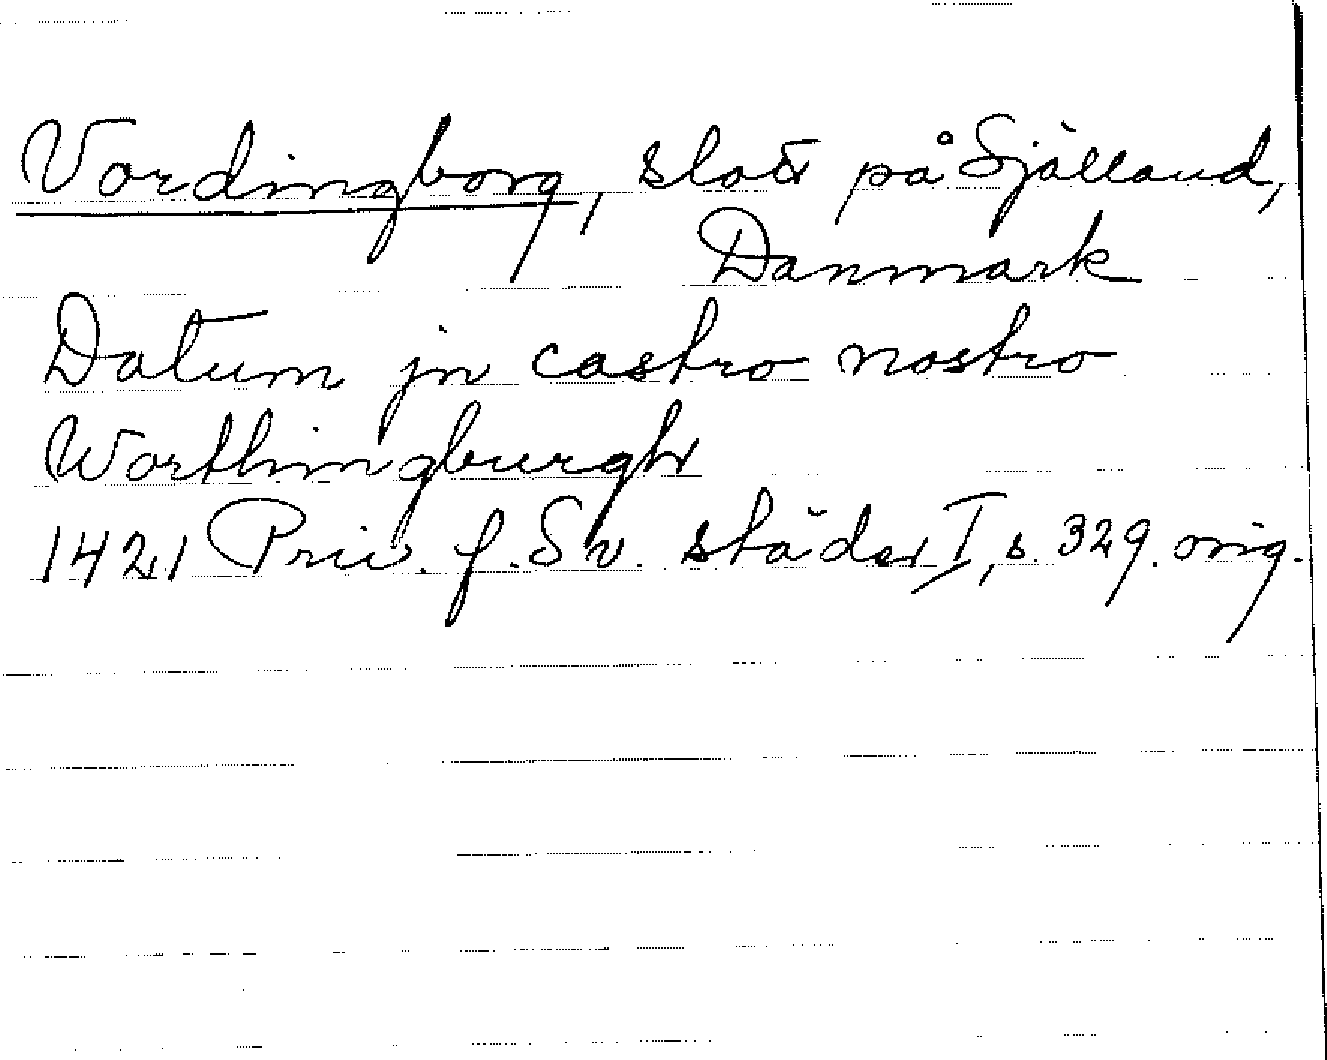 Vordingborg, slott på Själland,
Danmark
Datum jn castro nostro
Worthingburgh
1421 Priv. f. Sv. städer I, s. 329. orig.